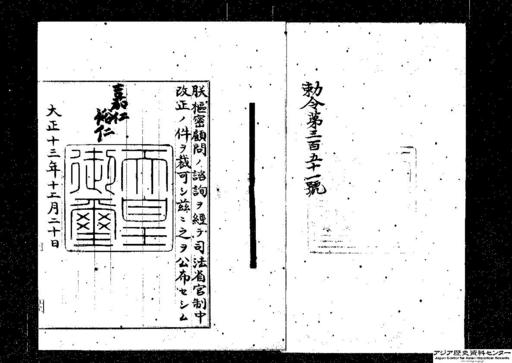 勅令第三百五十一號
朕樞密顧問ノ諮詢ヲ經テ司法省官制中
改正ノ件ヲ裁可シ茲ニ之ヲ公布セシム
嘉仁
裕仁
天皇
御璽
大正十三年十二月二十日
アジア歴史資料センター
Japan Center for Asian Historical Records